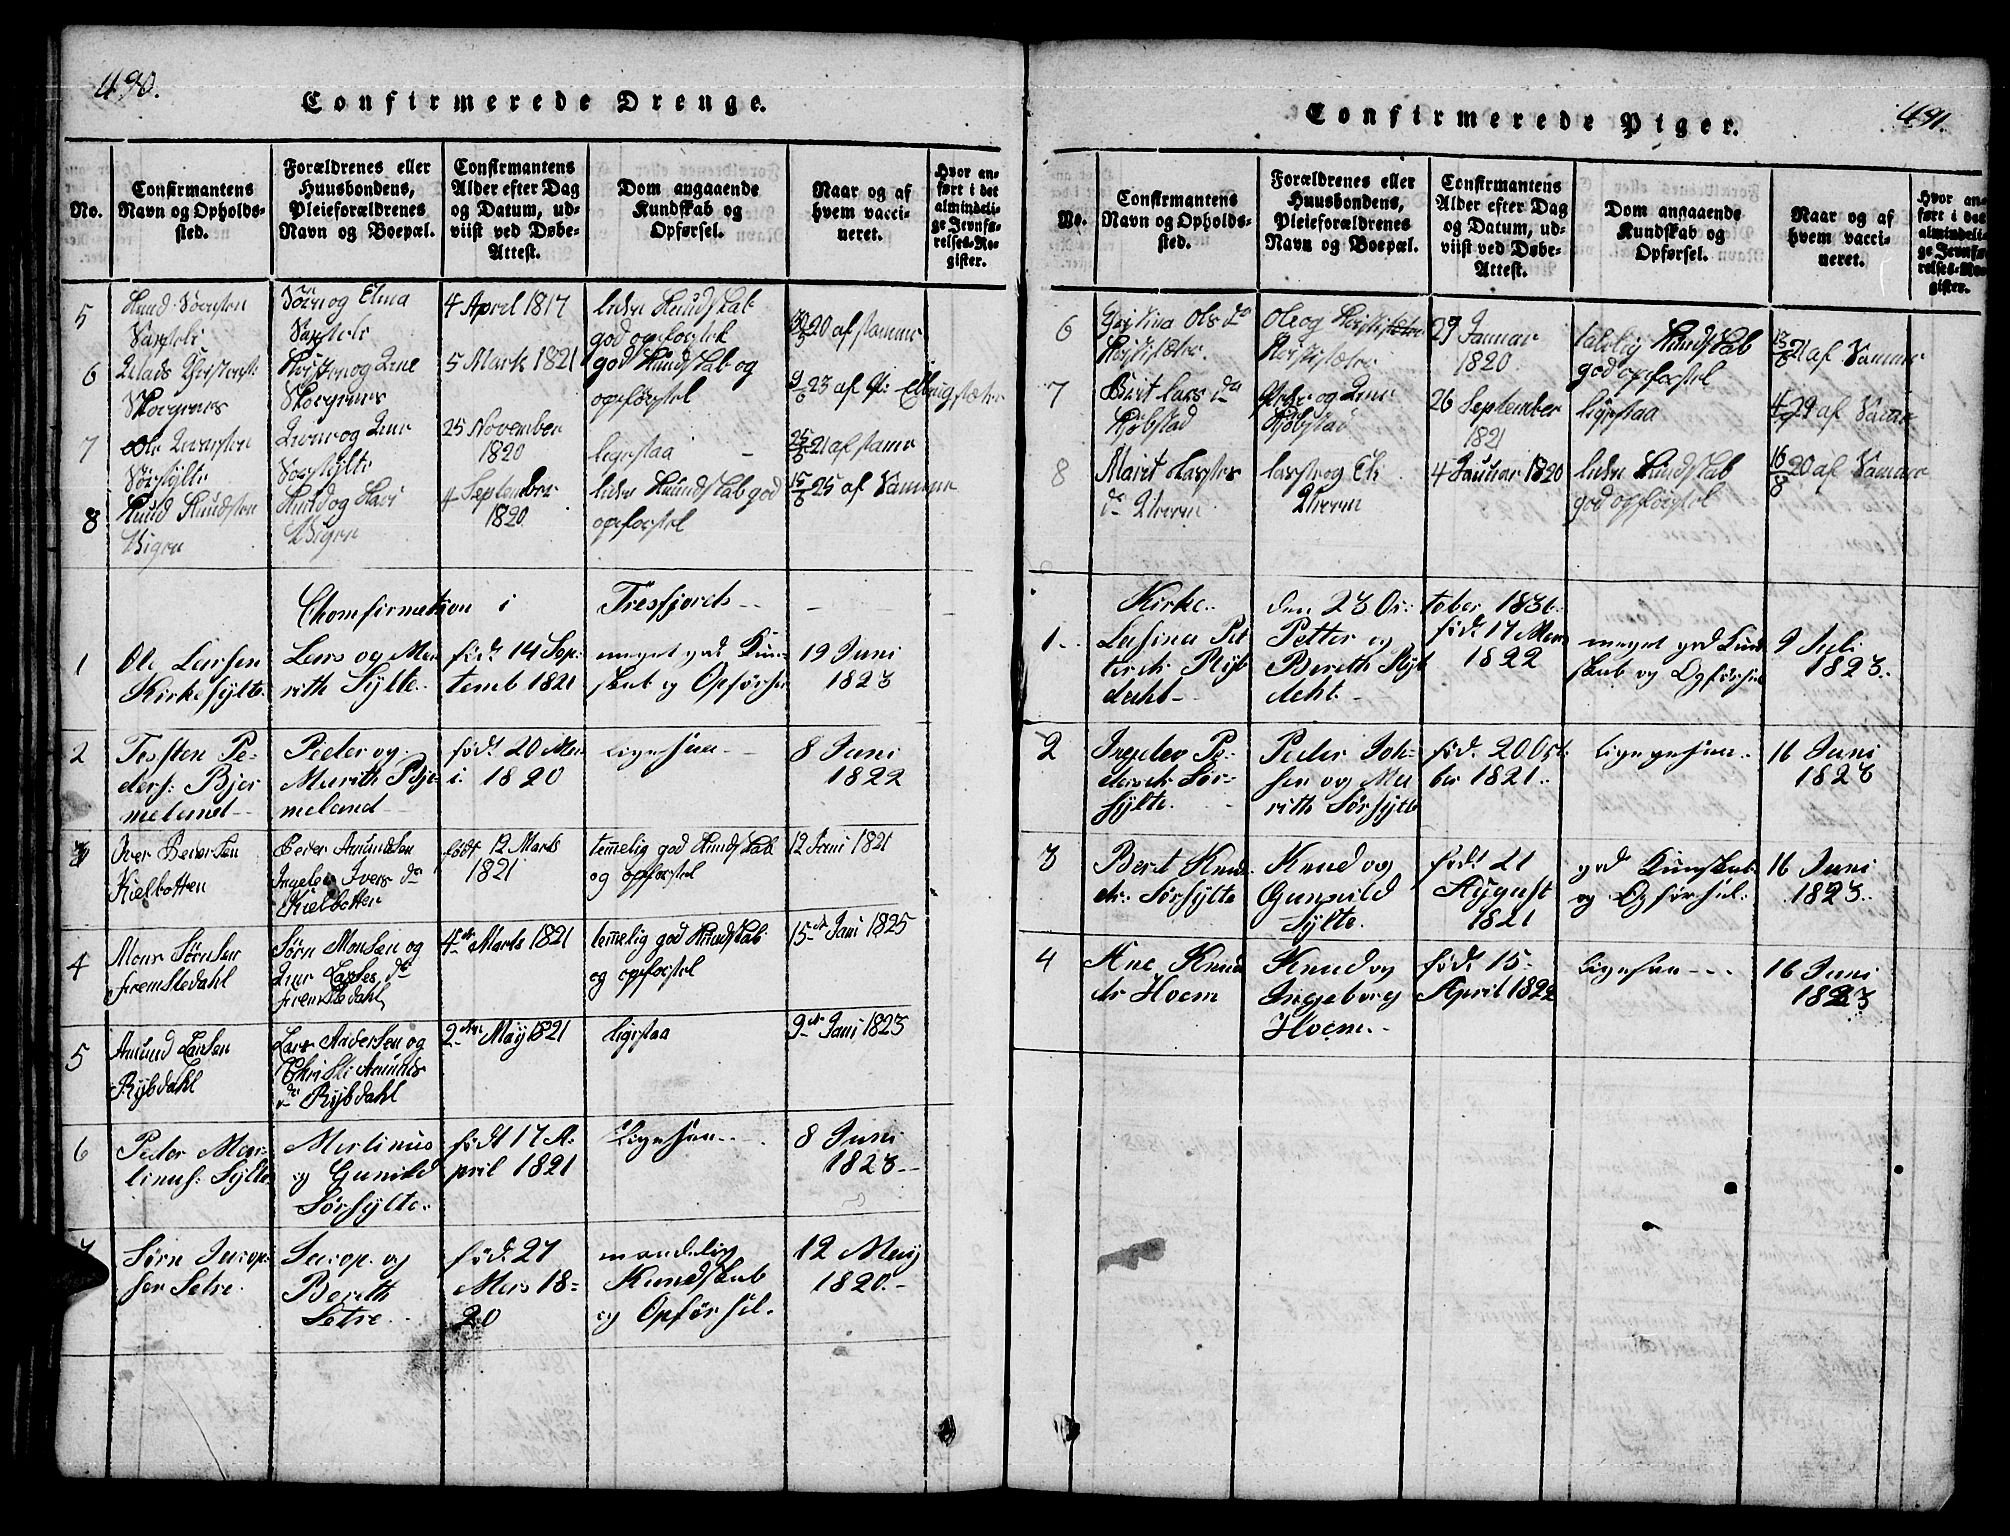 490.
Confirmerede Drenge.
No.
Confirmantens Navn og Opholds-sted.
Forældrenes eller Huusbondens, Pleieforældrenes Navn og Boepæl.
Confirmantens Alder efter Dag og Datum, ud-viist ved Døbe-Attest.
Dom angaaende Kundskab og Opførsel.
Naar og af hvem vacci-neret.
Hvor an-ført i det almindeli-ge Jevnfø-relses-Re-gister.
5
4 April 1817
liden Kundskab
god opførsel
20 af samme
6
5 Marts 1821
god Kundskab og
opførsel
9/6 23 af
7
25 November
1820
ligesaa
21 af samme
8 Knud Knudsen
Vigen
4 September
1820
liden Kundskab god
opførsel
25 af Samme
Chomfirmetion i Tresfjords --
1
Ole Larsen
Kirkesylte
Lars og Ma
rith Sylte.
født 14 Sep:
temb 1821
meget god Kun
skab og Opførsel
19 Juni
1823
2
Torsten Pe-
ders: Bjer
meland
Peder og
Marith Bje-
meland
født 20 Ma
i 1820
ligesaa
8 Juni
1822
3
Iver Pedersen
Kielbotten
Peder Amundsen
Ingelev Ivers da
Kielbotten
født 12 Marts
1821
temelig god Kundskab
og opførsel
12 Juni 1821
4
Mons Sørnsen
Fremstedahl
Sørn Monsen og
Ane Lasses da
Fremstedahl
4de Marts 1821
temelig god Kundskab
og opførsel
15de Juni 1825
5
Amund Larsen
Rybdahl
Lars Andersen og
Christi Amunds
da Rybdahl
2den May 1821
ligesaa
9de Juni 1823
6
Peder Mar-
tinus: Sylte
Martinus
og Gunild
Sørsylte.
født 17 A-
pril 1821
Ligesaa
8 Juni
1823
7
Sørn Jacop
sen Setre
Jacop og
Bereth
Setre
født 27
Mars 18=
20
maadelig
Kundskab
og Opførsel.
12 May
1820.
491.
Confirmerede Piger.
No.
Confirmantens Navn og Opholds-sted.
Forældrenes eller Huusbondens, Pleieforældrenes Navn og Boepæl.
Confirmantens Alder efter Dag og Datum, ud-viist ved Døbe-Attest.
Dom angaaende Kundskab og Opførsel.
Naar og af hvem vacci-neret.
Hvor an-ført i det almindeli-ge Jevnfø-relses-Re-gister.
6
Ols da
29 Januar
1820
Kundskab
god opførsel
21 af Samme
7
Birit Lars da
26 September
1821
ligesaa
29 af Samme
8
Marit Lasses
da
Lasse og
4 Januar 1820
liden Kundskab
god opførsel
16/8 20 af Samme
Kirke. den 23 Oc: tober 1836.
1
Lasina Pet
terdr. Ryb
dahl
Petter og
Bereth Ryb
dahl
født 17 Mars
1822
meget god Kund
skab og Opførsel
9 Juli
1823.
2
Ingelev Pe-
dersdr. Sør-
sylte.
Peder Joh-
sen og Ma
rith Sørsylte
født 20 Octo
ber 1821.
ligegesaa.
16 Juni
1823
3
Beret Knud
dr. Sørsylte
Knud og
Gunnild
Sylte.
født 21
August
1821
god Kunskab
og Opførsel.
16 Juni
1823.
4
Ane Knud
dr. Hoem
Knud og
Ingeborg
Hoem.
født 15
April 1822
Ligesaa
16 Juni
1823